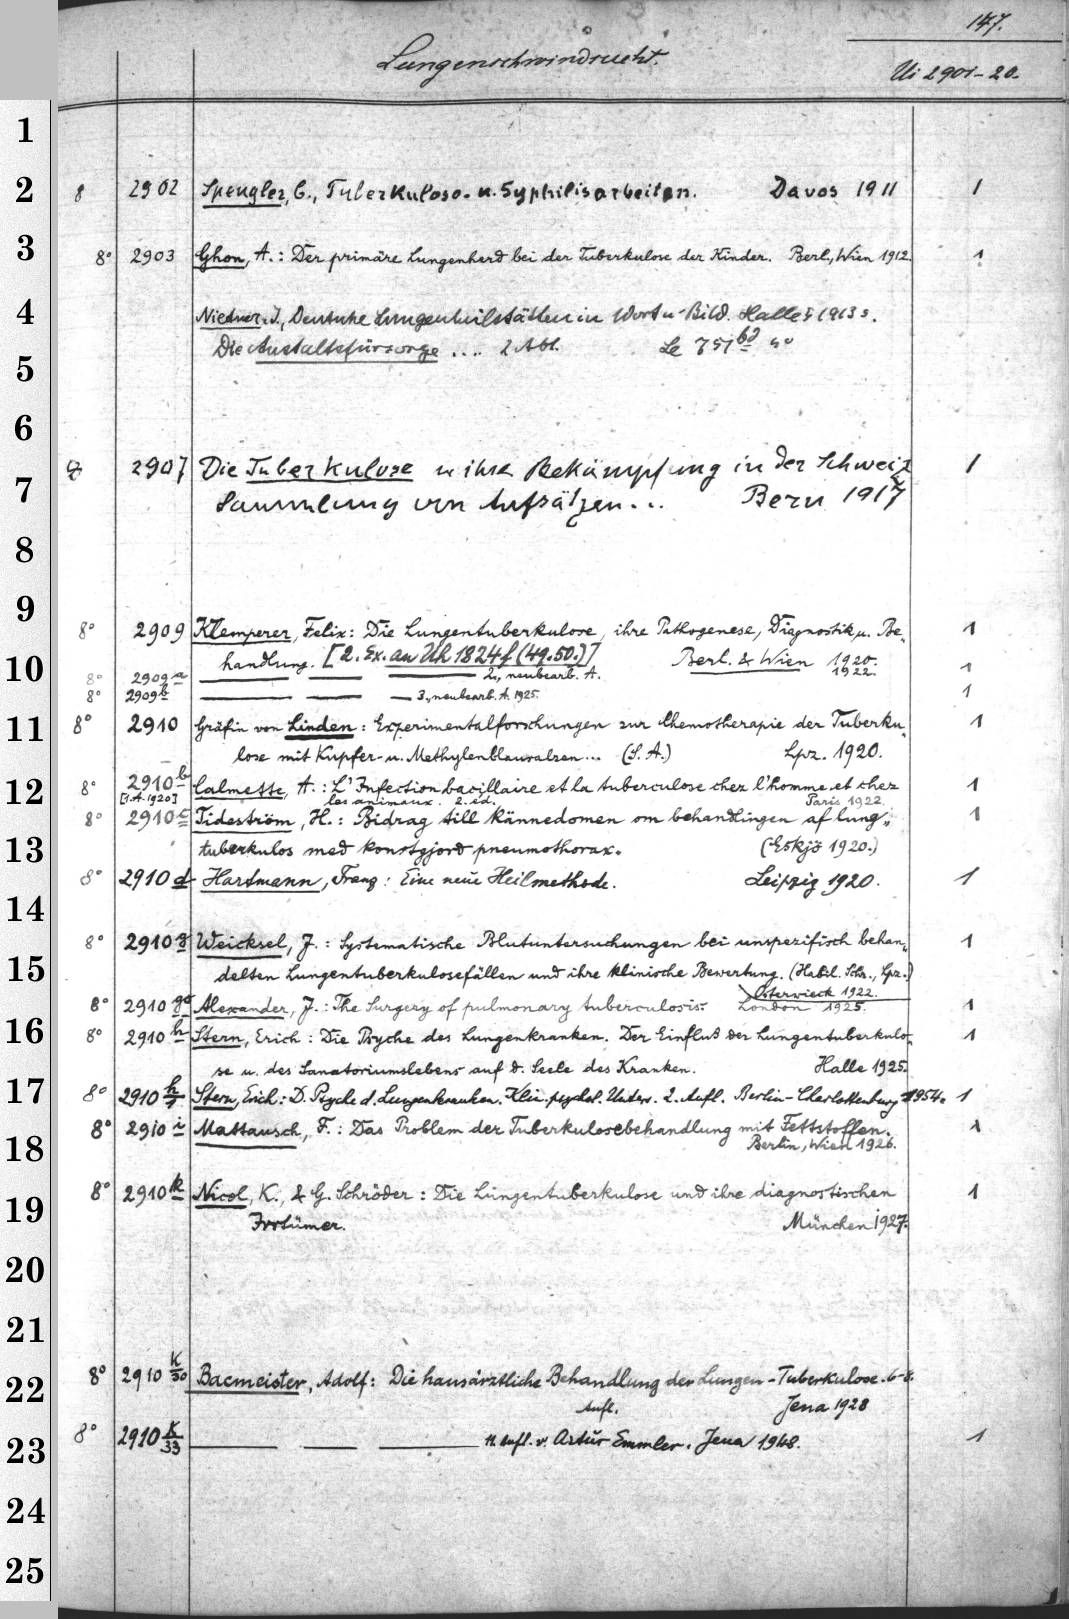 147.
Lungenschwindsucht.
Ui 2901-20.
1
2
8 2902 Spengler, C., Tuberkulose- u. Syphilisarbeiten. Davos 1911 1
3
8° 2903 Ghon, A.: Der primäre Lungenherd bei der Tuberkulose der Kinder. Berl., Wien 1912. 1
4
Nietner, J., Deutsche Lungenheilstätten in Wort u. Bild. Halle 1913
Die Anstaltsfürsorge .... 2 Abt. Le 751 4°
5
6
8 2907 Die Tuberkulose u ihre Bekämpfung in der Schweiz 1
7
Sammlung von Aufsätzen... Bern 1917
8
9
8° 2909 Klemperer, Felix: Die Lungentuberkulose, ihre Pathogenese, Diagnostik u. Be- 1
handlung. [2. Ex. an Uh 1824f (49.50.)] Berl. & Wien 1920.
10
8° 2909a — — — 2., neubearb. A. 1922. 1
8° 2909b — — — 3., neubearb. A. 1925. 1
11
8° 2910 Gräfin von Linden: Experimentalforschungen zur Chemotherapie der Tuberku- 1
lose mit Kupfer- u. Methylenblausalzen... (S. A.) Lpz. 1920.
12
8° 2910b Calmette, A.: L'Infection bacillaire et la tuberculose chez l'homme et chez 1
[J.A. 1920] les animaux. 2. éd. Paris 1922.
8° 2910c Tideström, H.: Bidrag till kännedomen om behandlingen af lung- 1
13
tuberkulos med konstgjord pneumothorax. (Eskjö 1920.)
8° 2910d Hartmann, Franz: Eine neue Heilmethode. Leipzig 1920. 1
14
8° 2910g Weicksel, J.: Systematische Blutuntersuchungen bei unspezifisch behan- 1
15
delten Lungentuberkulosefällen und ihre klinische Bewertung. (Habil. Schr., Lpz.)
Osterwieck 1922.
8° 2910ga Alexander, J.: The Surgery of pulmonary tuberculosis. London 1925. 1
16
8° 2910h Stern, Erich: Die Psyche des Lungenkranken. Der Einfluß der Lungentuberkulo- 1
se u. des Sanatoriumslebens auf d. Seele des Kranken. Halle 1925.
17
8° 2910h/1 Stern, Erich: D. Psyche d. Lungenkranken. Klin. psychol. Unters. 2. Aufl. Berlin-Charlottenburg 1954. 1
8° 2910i Mattausch, F.: Das Problem der Tuberkulosebehandlung mit Fettstoffen. 1
18
Berlin, Wien 1926.
8° 2910k Nicol, K., & G. Schröder: Die Lungentuberkulose und ihre diagnostischen 1
19
Irrtümer. München 1927.
20
21
8° 2910 K/30 Bacmeister, Adolf: Die hausärztliche Behandlung der Lungen-Tuberkulose. 6-8.
22
Aufl. Jena 1928
8° 2910 K/33 — — — 11. Aufl. v. Artur Emmler. Jena 1948. 1
23
24
25